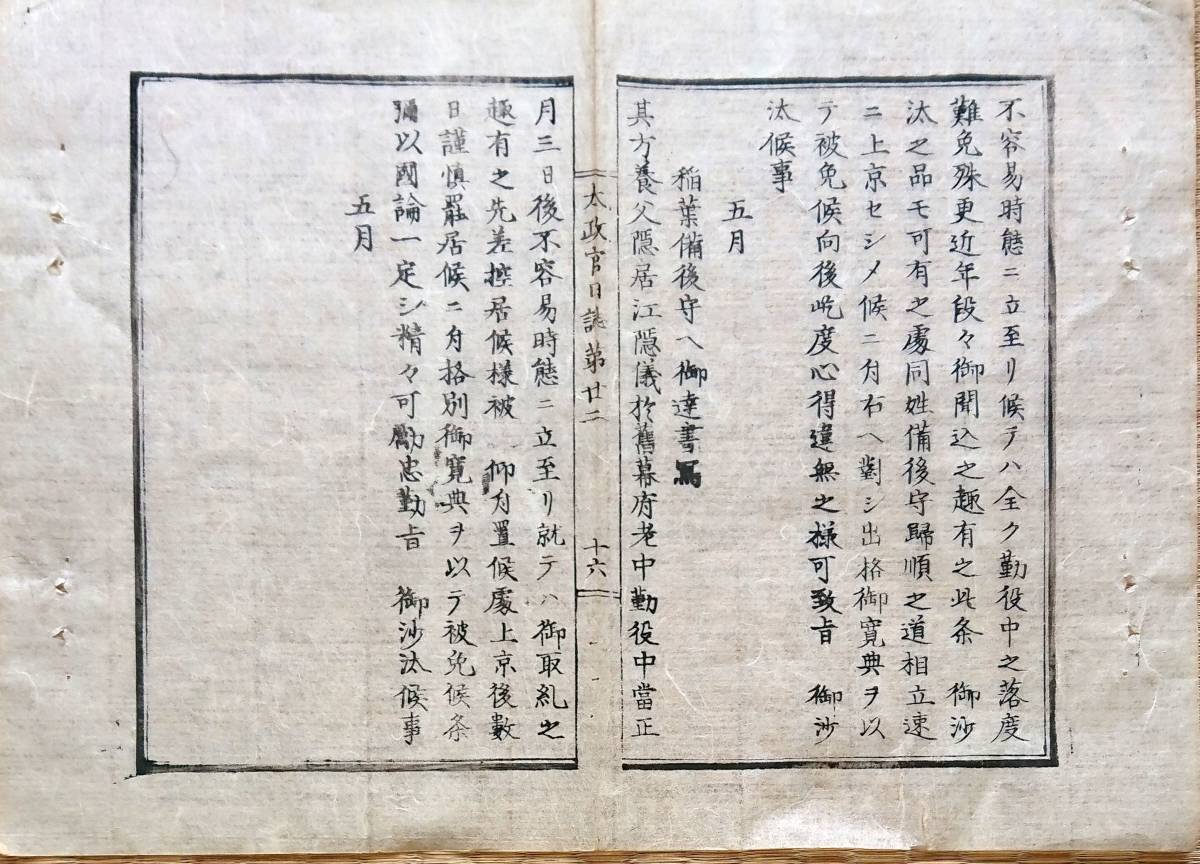 不容易時態ニ立至リ候テハ全ク勤役中之落度
難免殊更近年段々御聞込之趣有之此条　御沙
汰之品モ可有之處同姓備後守歸順之道相立速
ニ上京セシメ候ニ付右ヘ對シ出格御寛典ヲ以
テ被免候向後屹度心得違無之様可致旨　御沙
汰候事
五月
稲葉備後守ヘ御達書寫
其方養父隠居江隠儀於舊幕府老中勤役中當正
太政官日誌第廿二
十六
月三日後不容易時態ニ立至リ就テハ御取糺之
趣有之先差控居候様被　仰付置候處上京後數
日謹慎罷居候ニ付格別御寛典ヲ以テ被免候条
彌以國論一定シ精々可勵忠勤旨　御沙汰候事
五月